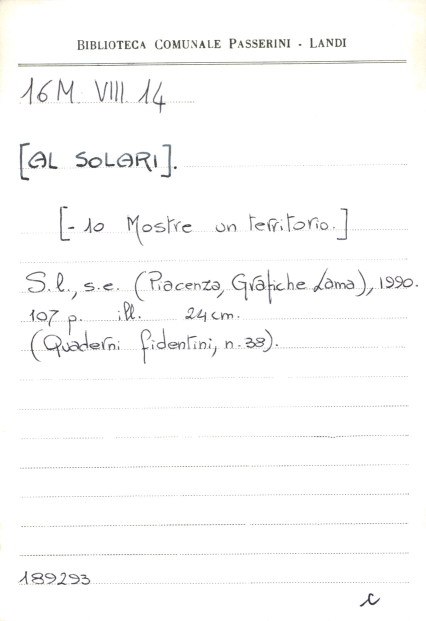 BIBLIOTECA COMUNALE PASSERINI - LANDI
16M. VIII. 14
[AL SOLARI].
[- 10 Mostre un territorio.]
S.l., s.e. (Piacenza, Grafiche Lama), 1990.
107 p. ill. 24 cm.
(Quaderni fidentini, n. 38).
189293
c